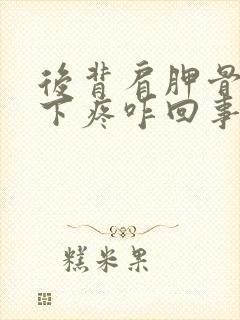 後背肩胛骨
下疼咋回事
糕米果